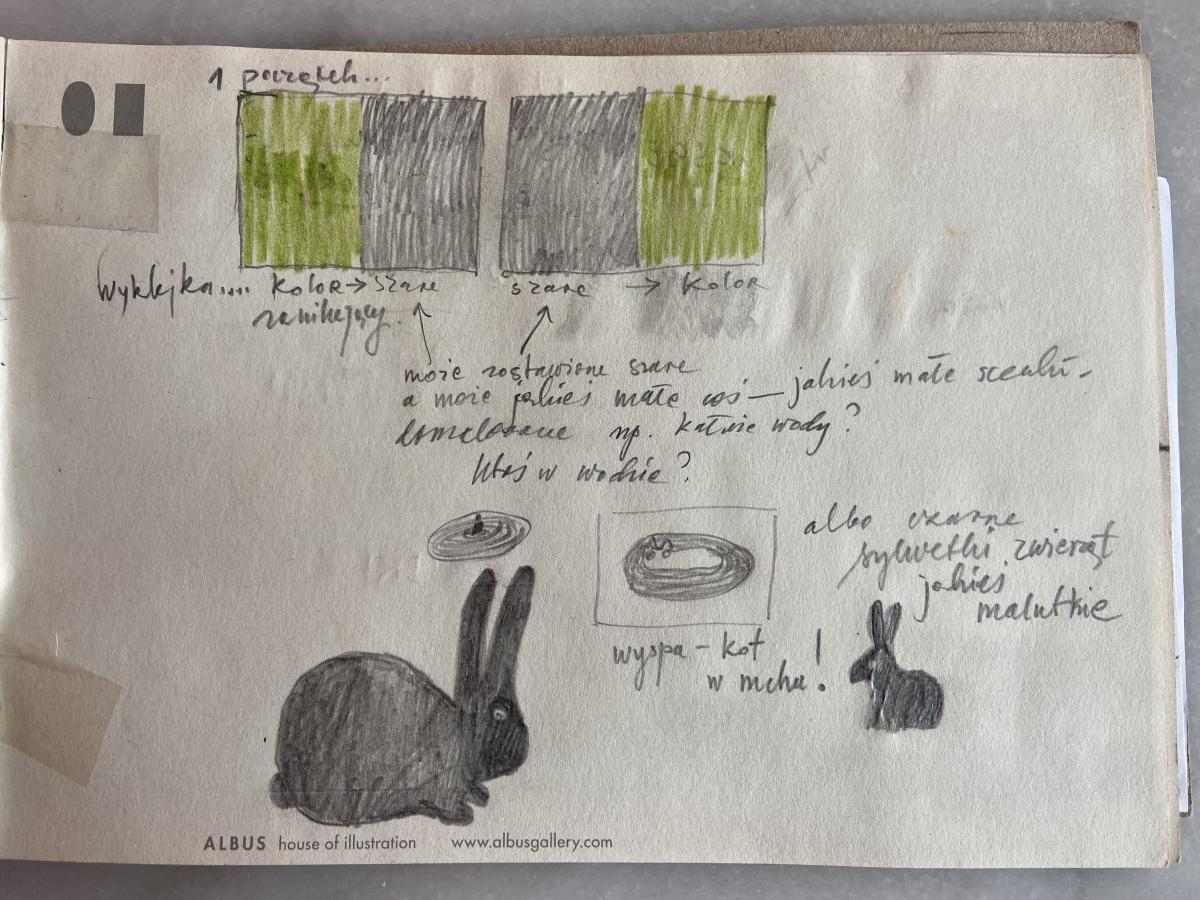 1 początek...
Wyklejka.... kolor → szare
zanikający.
szare → kolor
może zostawione szare
a może jakieś małe coś — jakieś małe scenki -
domalowane np. kałuże wody?
Ktoś w wodzie?
albo czarne
sylwetki zwierząt
jakieś
malutkie
wyspa - kot
w mchu!
ALBUS house of illustration www.albusgallery.com